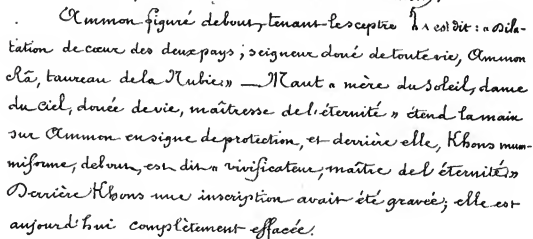 . Ammon figuré debout, tenant le sceptre est dit : « Dila-
tation de cœur des deux pays ; seigneur doué de toute vie, Ammon
Râ, taureau de la Nubie » — Maut « mère du soleil, dame
du ciel, douée de vie, maîtresse de l'éternité » étend la main
sur Ammon en signe de protection, et derrière elle, Khons mum-
miforme, debout, est dit « vivificateur, maître de l'éternité »
Derrière Khons une inscription avait été gravée ; elle est
aujourd'hui complètement effacée.